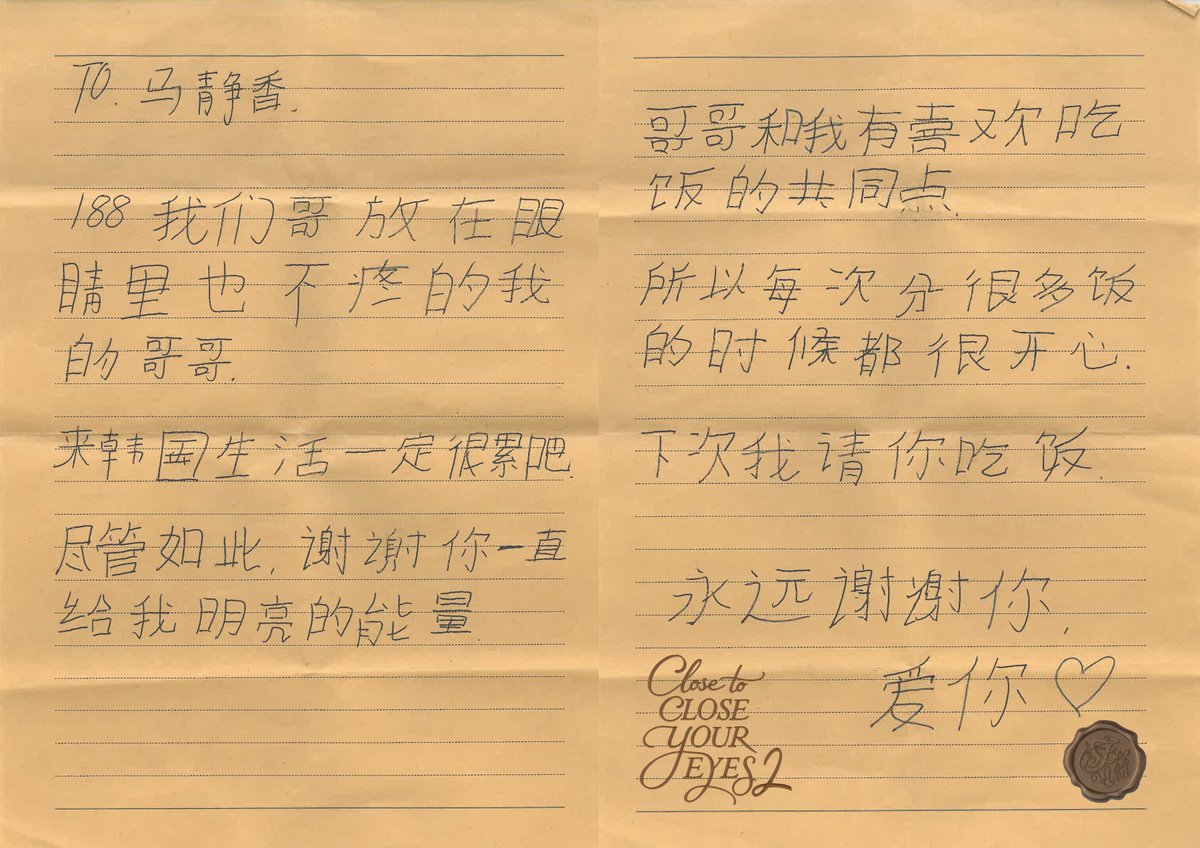 TO. 马静香.
188 我们哥放在眼
睛里也不疼的我
的哥哥.
来韩国生活一定很累吧.
尽管如此, 谢谢你一直
给我明亮的能量.
哥哥和我有喜欢吃
饭的共同点.
所以每次分很多饭
的时候都很开心.
下次我请你吃饭.
永远谢谢你,
爱你♡
Close to
CLOSE
YOUR
EYES 2